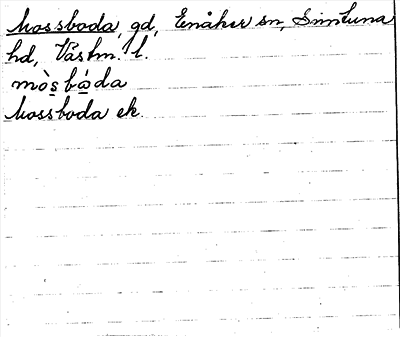 Mossboda, gd, Enåker sn, Simtuna
hd, Västm. l.
mò̀s̲bώ̲da
Mossboda ek.